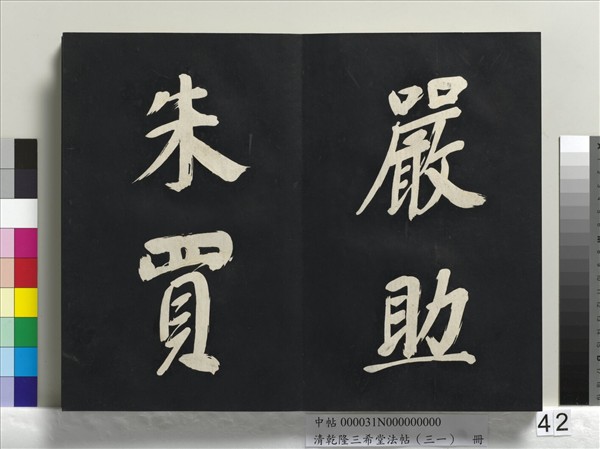 嚴助
朱買
中帖 000031N000000000
清乾隆三希堂法帖（三一） 冊
42